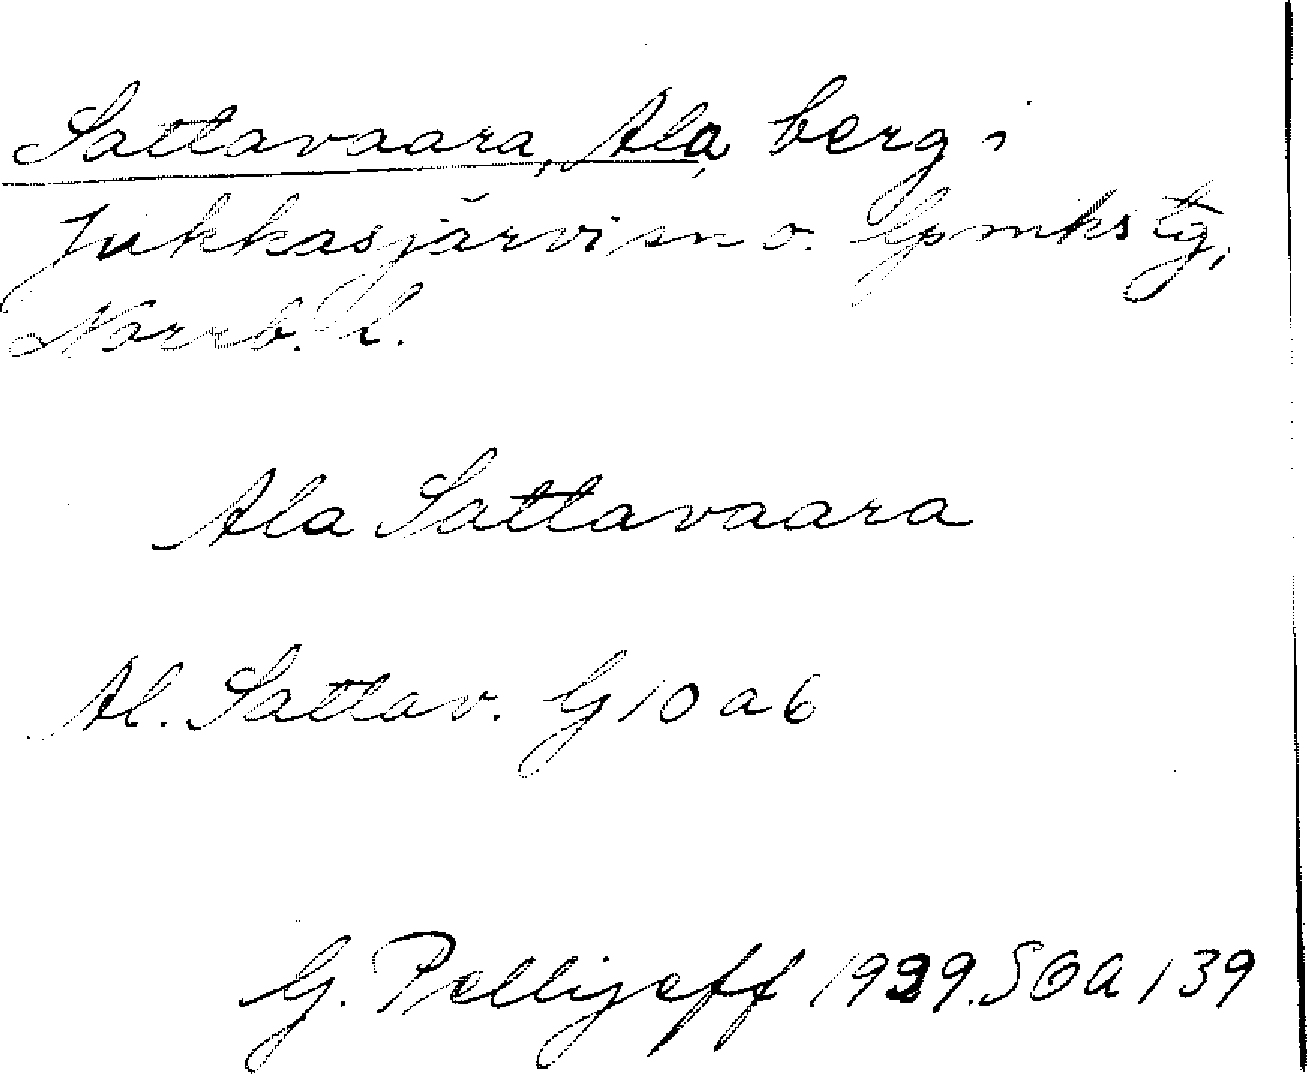 Sattavaara, Ala, berg i
Jukkasjärvi sn o. lpmkstg,
Norrb. l.
Ala Sattavaara
Al. Sattav. G 10 a 6
G. Pellijeff 1939. SOA 139